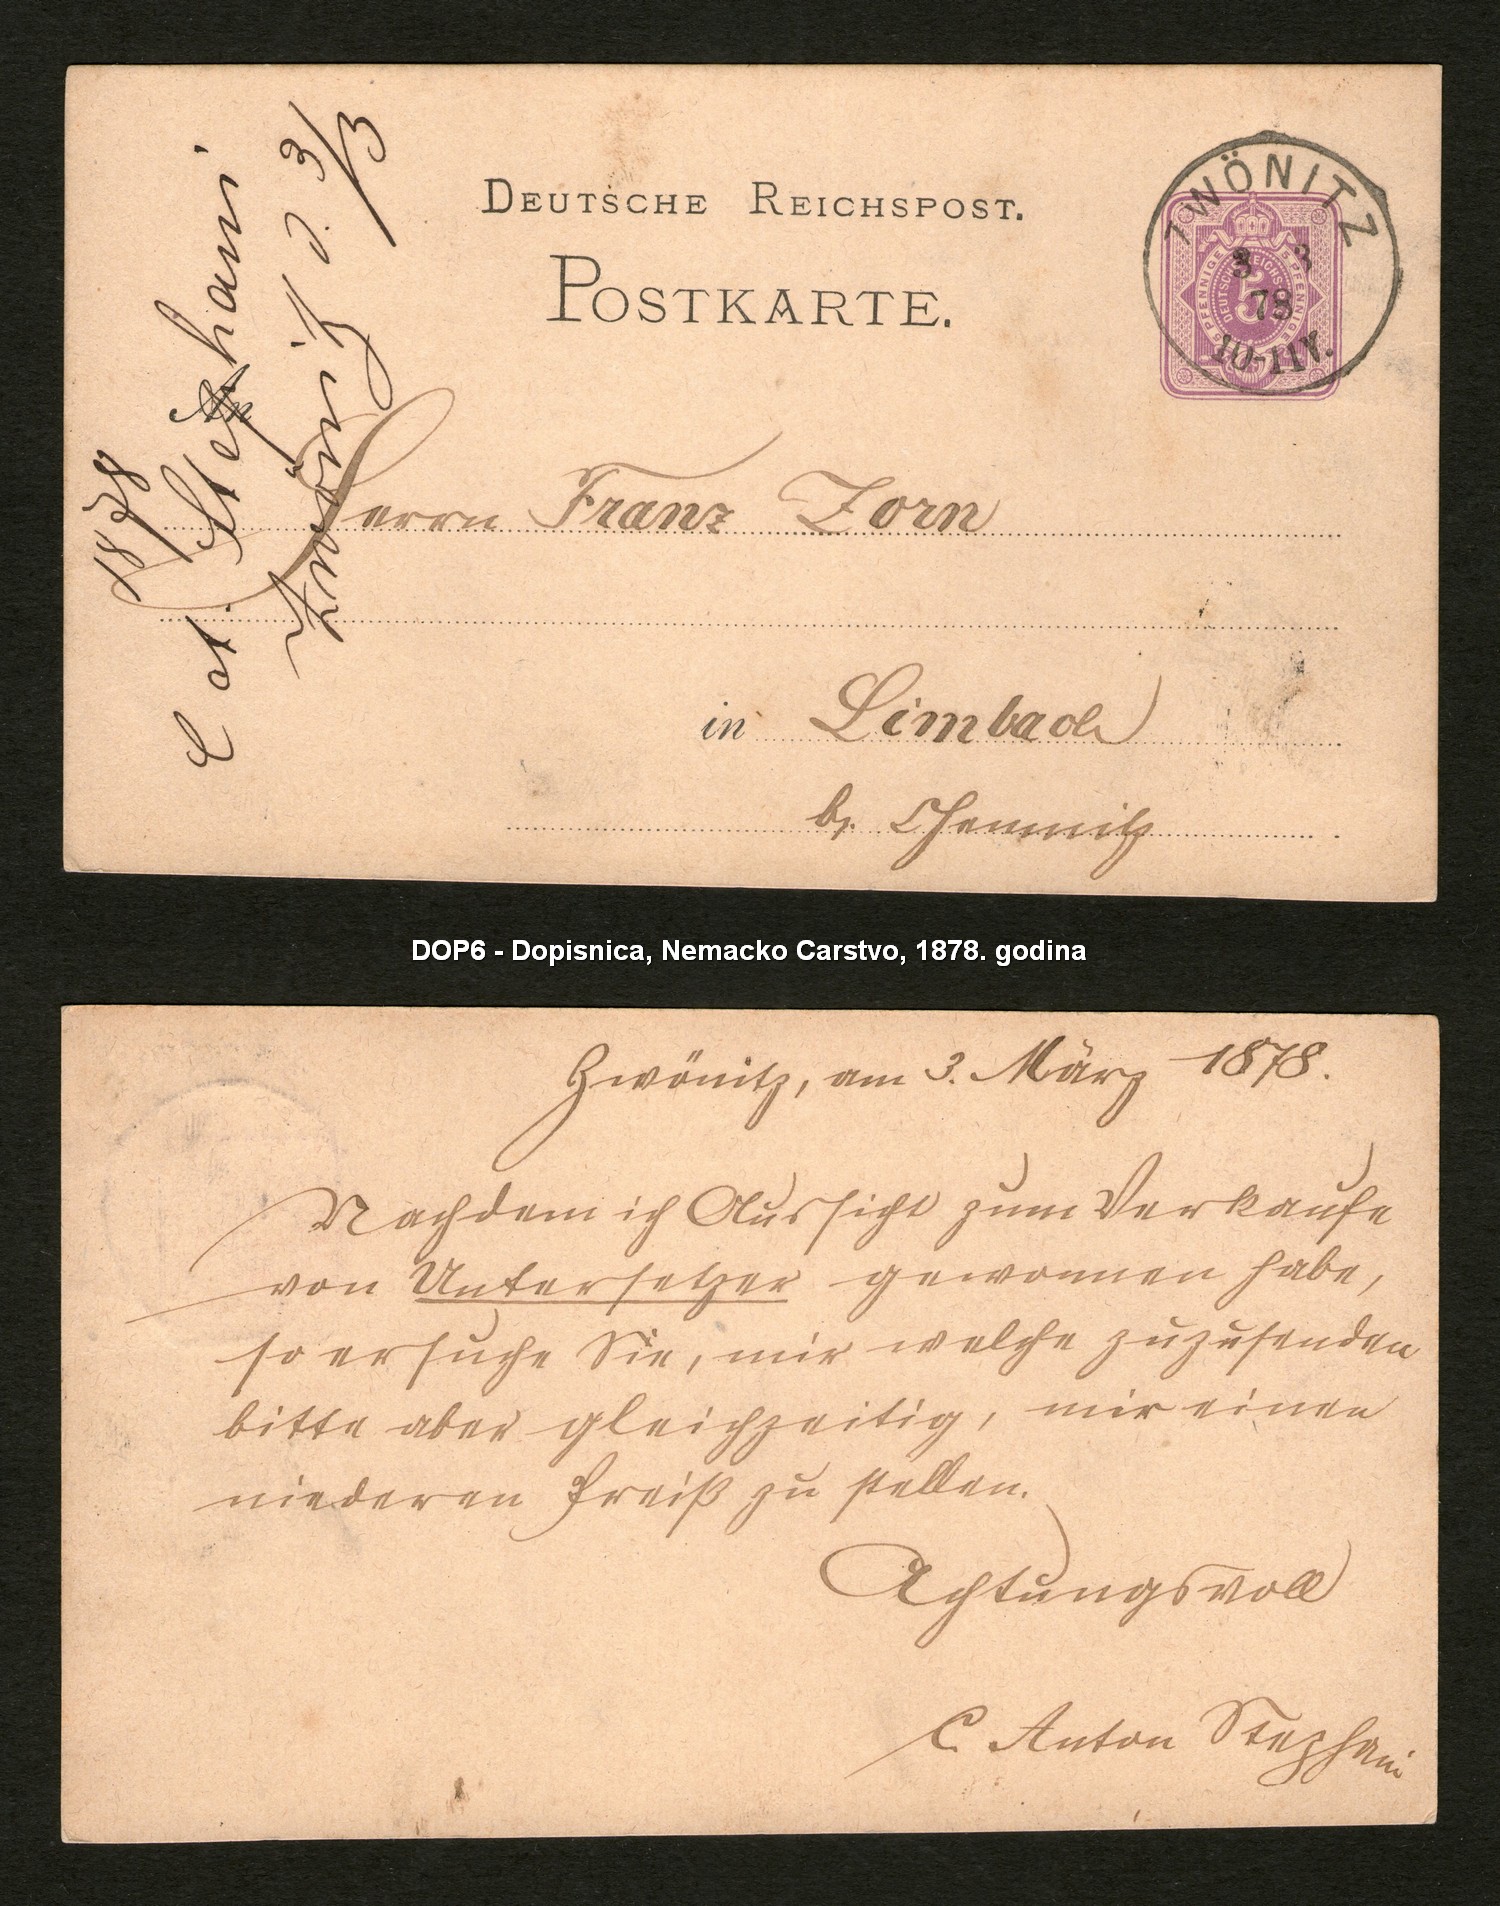 DEUTSCHE REICHSPOST.
POSTKARTE.
ZWÖNITZ
3 3
78
10-11V.
5 PFENNIGE 5 PFENNIGE
DEUTSCHE REICHS
5
An
Herrn Franz Zorn
in Limbach
b. Chemnitz
1878
C at. Stephani
Zwönitz d. 3/3
DOP6 - Dopisnica, Nemacko Carstvo, 1878. godina
Zwönitz, am 3. März 1878.
Nachdem ich Aussicht zum Verkaufe
von Untersetzer gewonnen habe,
so ersuche Sie, mir welche zuzusenden
bitte aber gleichzeitig, mir einen
niederen Preiß zu stellen.
Achtungsvoll
C. Anton Stephani